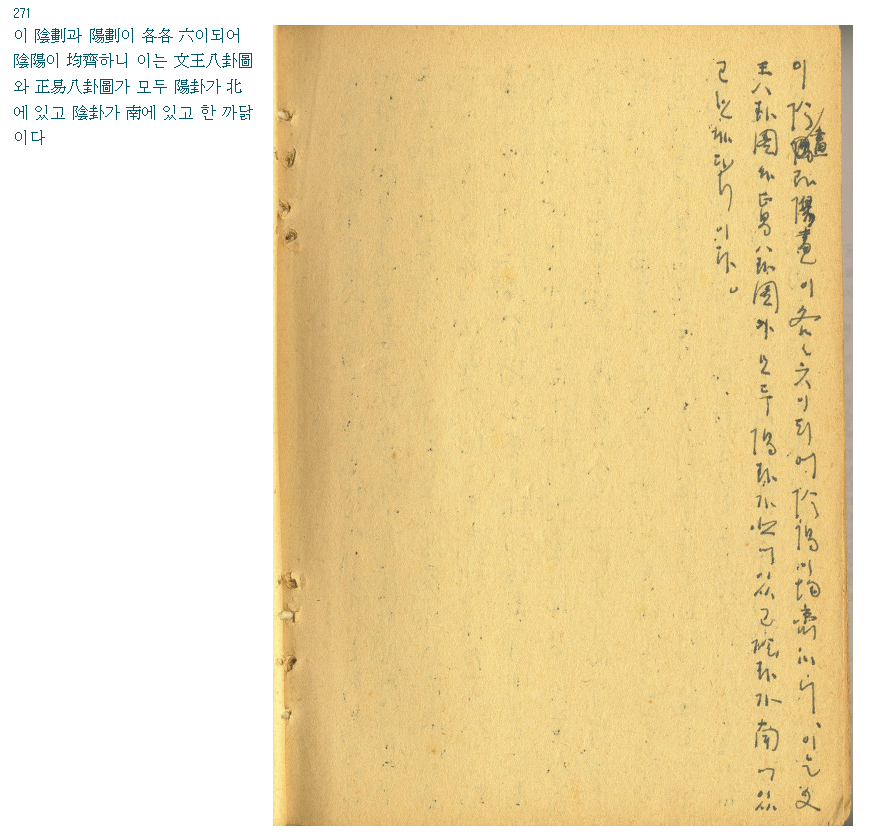 271
이 陰劃과 陽劃이 各各 六이되어
陰陽이 均齊하니 이는 文王八卦圖
와 正易八卦圖가 모두 陽卦가 北
에 있고 陰卦가 南에 있고 한 까닭
이다
이 陰畫과 陽畫이 各各 六이되어 陰陽이 均齊하니, 이는 文
王八卦圖와 正易八卦圖가 모두 陽卦가 北에 있고 陰卦가 南에 있
고 한 까닭이다。